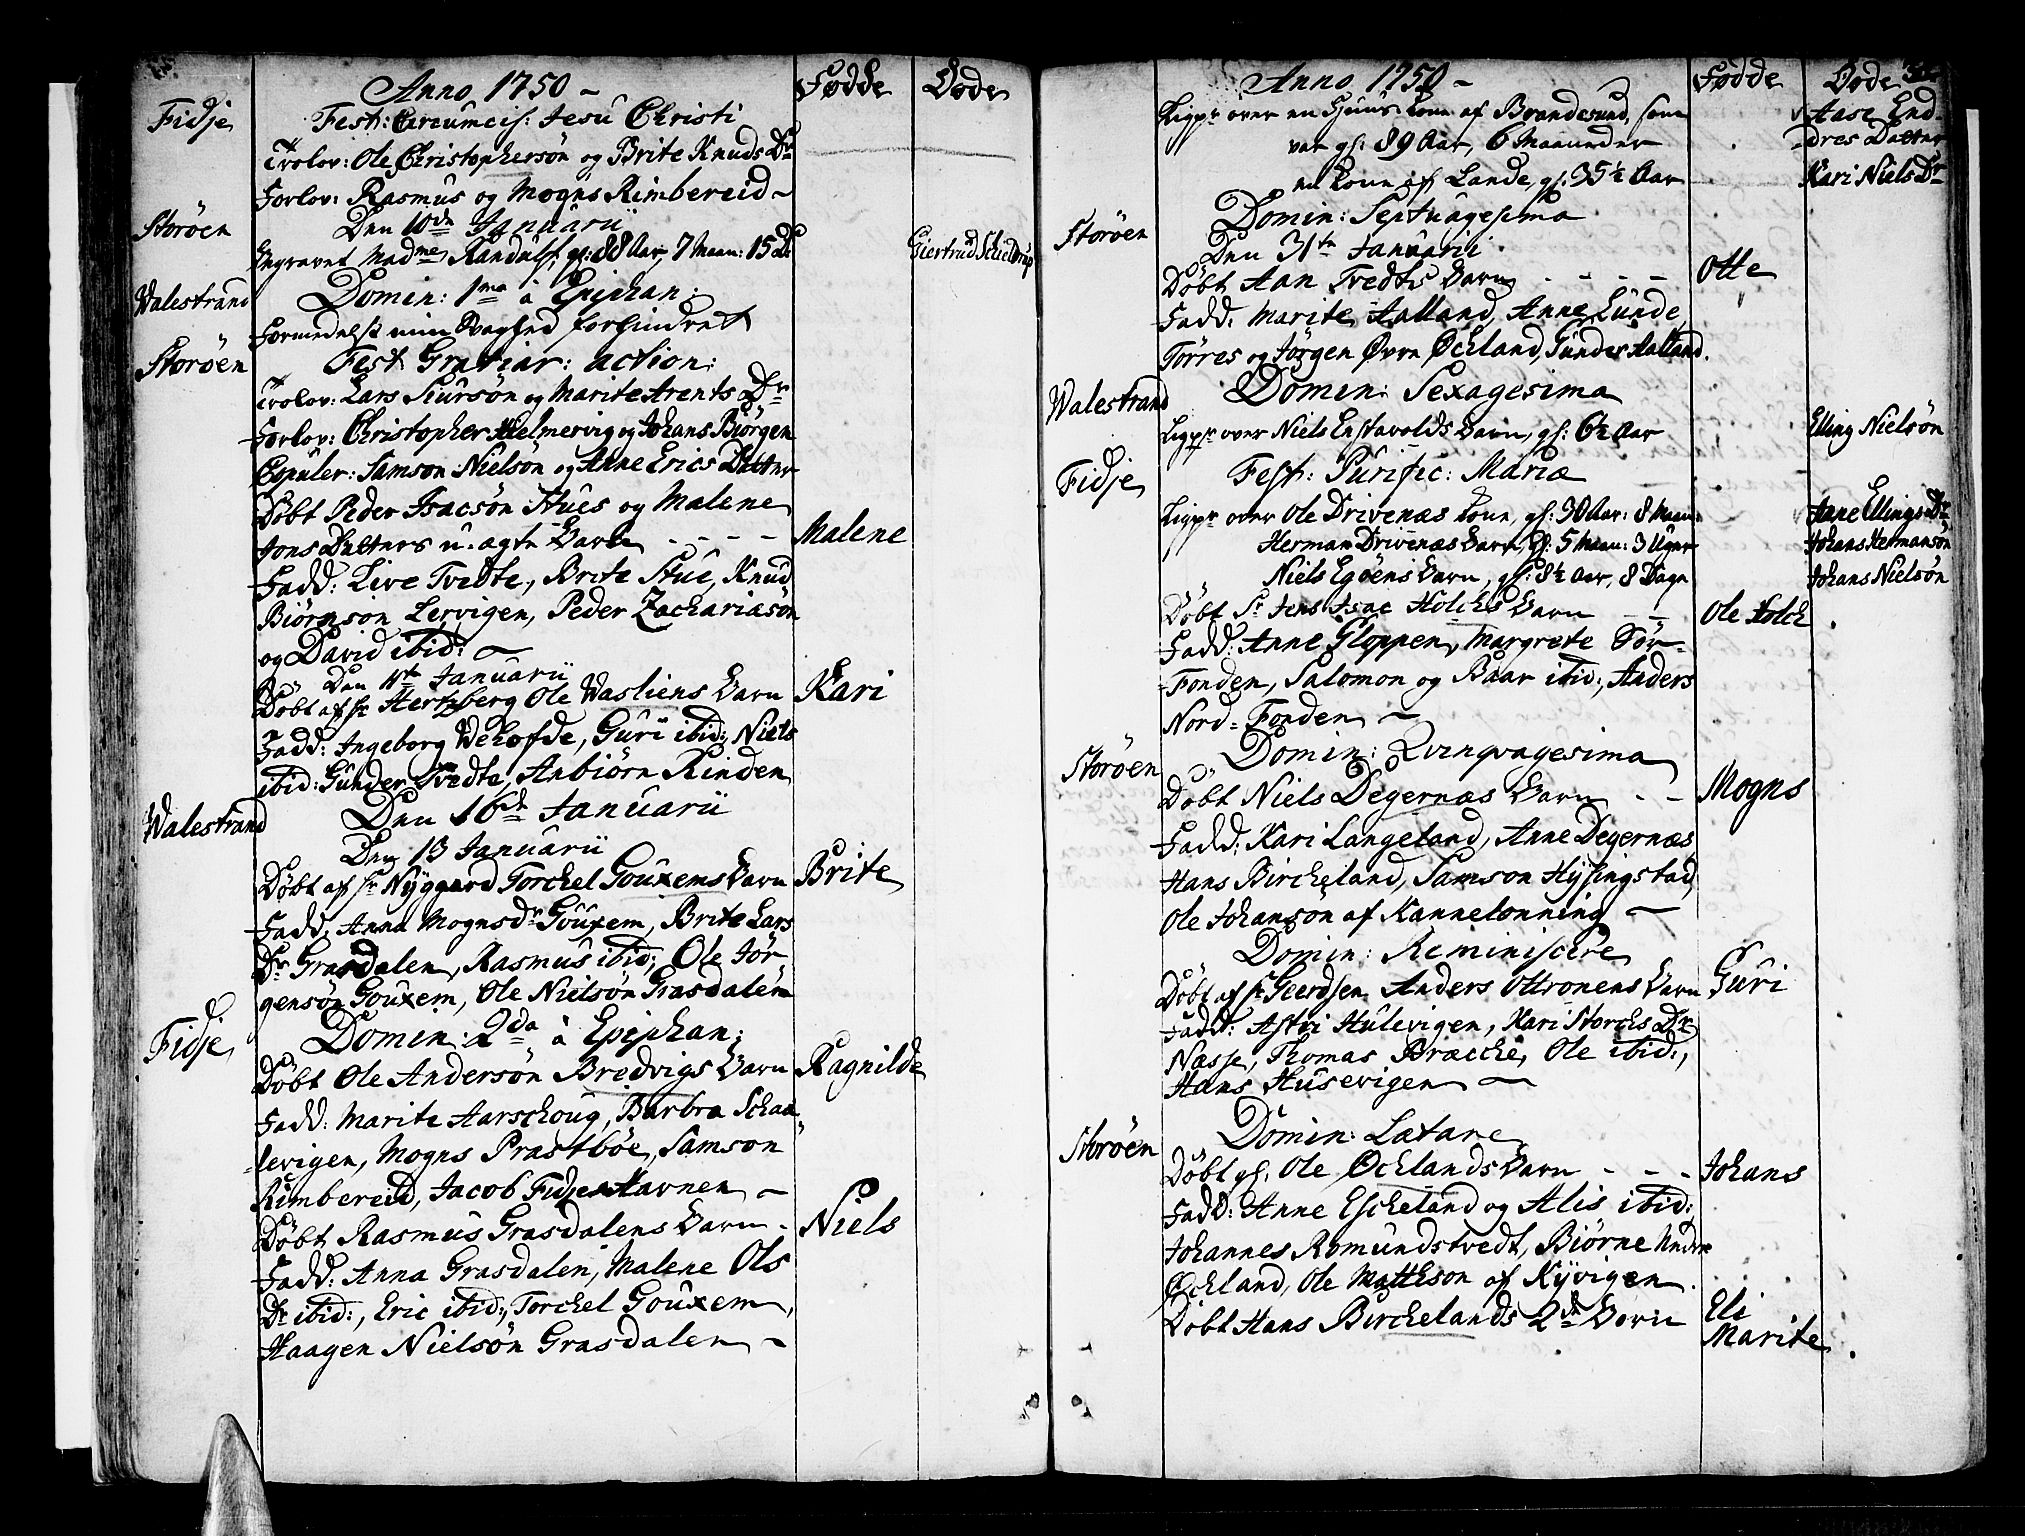 Anno 1750 Fødde Døde
Fidje Fest: Circumcis: Jesu Christi
Trolov: Ole Christophersøn og Brite Knuds Dr
Forlov: Rasmus og Mogns Rimbereid
Storøen Den 10de Januarii
Begravet Madme Randulf, gl: 88 Aar, 7 Maan: 15 D: Giertrud Schieldrup
Walestrand Domin: 1ma à Epiphan:
Formedelst min Svaghed forhindret
Storøen Fest Gratiar: action:
Trolov: Lars Siursøn og Marite Arents Dr
Forlov: Christopher Hielmervig og Johans Biørgen
Copuler: Samson Nielsøn og Anne Erics Datter
Døbt Peder Isacsøn Stues og Malene
Jons Datters u-ægte Barn - - - - Malene
Fadd: Live Tvedte, Brite Stue, Knud
Biørnson Lervigen, Peder Zachariasøn
og David ibid:
Den 11te Januarii
Døbt af Hr Hertzberg Ole Wasliens Barn Kari
Fadd: Ingeborg Wehofde, Guri ibid:, Niels
ibid: Gunder Tvedte, Anbiørn Rinden
Walestrand Den 16de Januarii
Den 13 Januarii
Døbt af Hr Nyggard Torchel Gouxems Barn Brite
Fadd: Anna Mognsdr Gouxem, Brite Lars
Dr Grasdalen, Rasmus ibid:, Ole Jør-
gensøn Gouxem, Ole Nielsøn Grasdalen
Fidje Domin: 2da à Epiphan:
Døbt Ole Andersøn Bredvigs Barn Ragnilde
Fadd: Marite Aarschoug, Barbra Schaa-
levigen, Mogns Prastbøe, Samson
Rimbereid, Jacob Fidje Havnen
Døbt Rasmus Grasdalens Barn - Niels
Fadd: Anna Grasdalen, Malene Ols
Dr ibid:, Eric ibid:, Torchel Gouxem,
Haagen Nielsøn Grasdalen
Anno 1750 Fødde Døde
Ligpr over en Huus Kone af Brandesund, som Aase End-
var gl: 89 Aar, 6 Maaneder dres Datter
en Kone af Lande, gl: 35½ Aar Kari Niels Dr
Storøen Domin: Septuagesima
Den 31te Januarii
Døbt Aan Tvedts Barn - - - - Otte
Fadd: Marite Aalland, Anne Lunde,
Tørres og Jørgen Øvre Øchland, Gunder Aalland.
Walestrand Domin: Sexagesima
Ligpr over Niels Enstavolds Barn, gl: 6½ Aar Elling Nielsøn
Fidje Fest: Purific: Mariæ
Ligpr over Ole Drivenæs Kone, gl: 30 Aar: 8 Maan: Anne Ellings Dr
Herman Drivenæs Barn, gl: 5 Maan: 3 Uger Johans Hermansøn
Niels Egøens Barn, gl: 8½ Aar, 8 Dage Johans Nielsøn
Døbt Sr Jens Isac Holchs Barn - - Ole Holch
Fadd: Anne Gloppen, Margrete Sør-
Fonden, Salomon og Baar ibid:, Anders
Nord-Fonden
Storøen Domin: Qvinqvagesima
Døbt Niels Degernæs Barn - - Mogns
Fadd: Kari Langeland, Anne Degernæs
Hans Bircheland, Samson Hysingstad,
Ole Johansøn af Kannelønning
Domin: Reminiscere
Døbt af Hr Geerdsen Anders Ottronens Barn Guri
Fadd: Astri Hulevigen, Kari Storchs Dr
Næsse, Thomas Bræcche, Ole ibid:,
Hans Husevigen
Storøen Domin: Lætare
Døbt gl: Ole Øchlands Barn - - - Johans
Fadd: Anne Escheland og Alis ibid:
Johannes Romundstvedt, Biørne Undre
Øchland, Ole Mattheson af Nyvigen
Døbt Hans Birchelands 2de Børn Eli
Marite